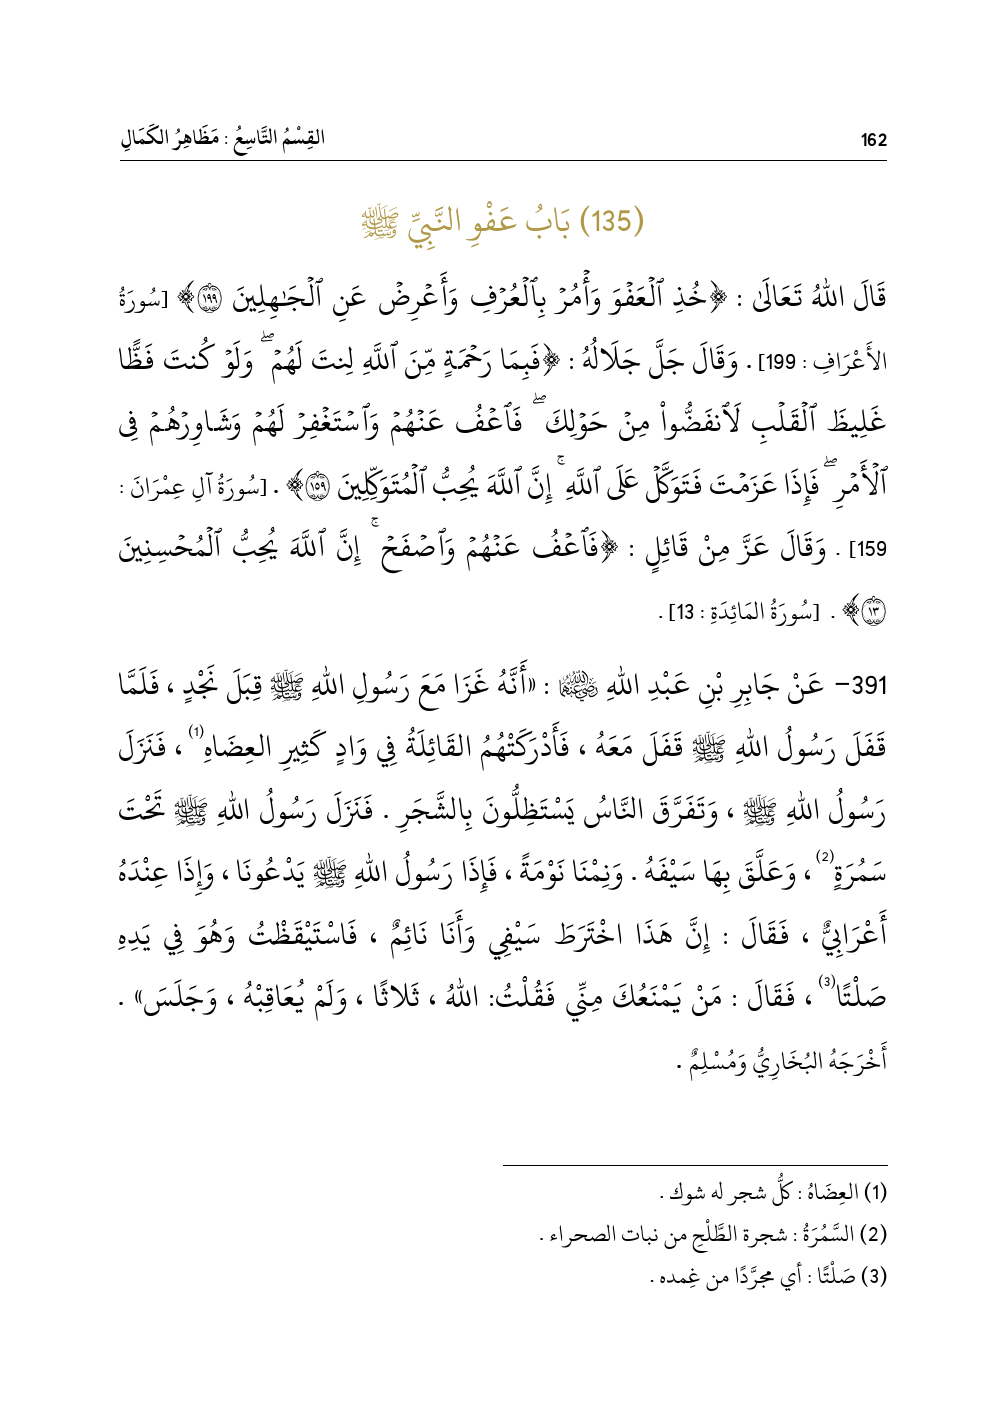 162
القِسْمُ التَّاسِعُ : مَظَاهِرُ الكَمَالِ
(135) بَابُ عَفْوِ النَّبِيِّ ﷺ
قَالَ اللهُ تَعَالَىٰ : ﴿خُذِ ٱلۡعَفۡوَ وَأۡمُرۡ بِٱلۡعُرۡفِ وَأَعۡرِضۡ عَنِ ٱلۡجَٰهِلِينَ ١٩٩﴾ [سُورَةُ
الأَعْرَافِ : 199] . وَقَالَ جَلَّ جَلَالُهُ : ﴿فَبِمَا رَحۡمَةٖ مِّنَ ٱللَّهِ لِنتَ لَهُمۡۖ وَلَوۡ كُنتَ فَظًّا
غَلِيظَ ٱلۡقَلۡبِ لَٱنفَضُّواْ مِنۡ حَوۡلِكَۖ فَٱعۡفُ عَنۡهُمۡ وَٱسۡتَغۡفِرۡ لَهُمۡ وَشَاوِرۡهُمۡ فِي
ٱلۡأَمۡرِۖ فَإِذَا عَزَمۡتَ فَتَوَكَّلۡ عَلَى ٱللَّهِۚ إِنَّ ٱللَّهَ يُحِبُّ ٱلۡمُتَوَكِّلِينَ ١٥٩﴾ . [سُورَةُ آلِ عِمْرَانَ :
159] . وَقَالَ عَزَّ مِنْ قَائِلٍ : ﴿فَٱعۡفُ عَنۡهُمۡ وَٱصۡفَحۡۚ إِنَّ ٱللَّهَ يُحِبُّ ٱلۡمُحۡسِنِينَ
١٣﴾ . [سُورَةُ المَائِدَةِ : 13] .
391- عَنْ جَابِرِ بْنِ عَبْدِ اللهِ رضي الله عنهما : «أَنَّهُ غَزَا مَعَ رَسُولِ اللهِ ﷺ قِبَلَ نَجْدٍ ، فَلَمَّا
قَفَلَ رَسُولُ اللهِ ﷺ قَفَلَ مَعَهُ ، فَأَدْرَكَتْهُمُ القَائِلَةُ فِي وَادٍ كَثِيرِ العِضَاهِ(1) ، فَنَزَلَ
رَسُولُ اللهِ ﷺ ، وَتَفَرَّقَ النَّاسُ يَسْتَظِلُّونَ بِالشَّجَرِ . فَنَزَلَ رَسُولُ اللهِ ﷺ تَحْتَ
سَمُرَةٍ(2) ، وَعَلَّقَ بِهَا سَيْفَهُ . وَنِمْنَا نَوْمَةً ، فَإِذَا رَسُولُ اللهِ ﷺ يَدْعُونَا ، وَإِذَا عِنْدَهُ
أَعْرَابِيٌّ ، فَقَالَ : إِنَّ هَذَا اخْتَرَطَ سَيْفِي وَأَنَا نَائِمٌ ، فَاسْتَيْقَظْتُ وَهُوَ فِي يَدِهِ
صَلْتًا(3) ، فَقَالَ : مَنْ يَمْنَعُكَ مِنِّي فَقُلْتُ: اللهُ ، ثَلاثًا ، وَلَمْ يُعَاقِبْهُ ، وَجَلَسَ» .
أَخْرَجَهُ البُخَارِيُّ وَمُسْلِمٌ .
(1) العِضَاهُ : كلُّ شجر له شوك .
(2) السَّمُرَةُ : شجرة الطَّلْحِ من نبات الصحراء .
(3) صَلْتًا : أي مجرَّدًا من غِمده .